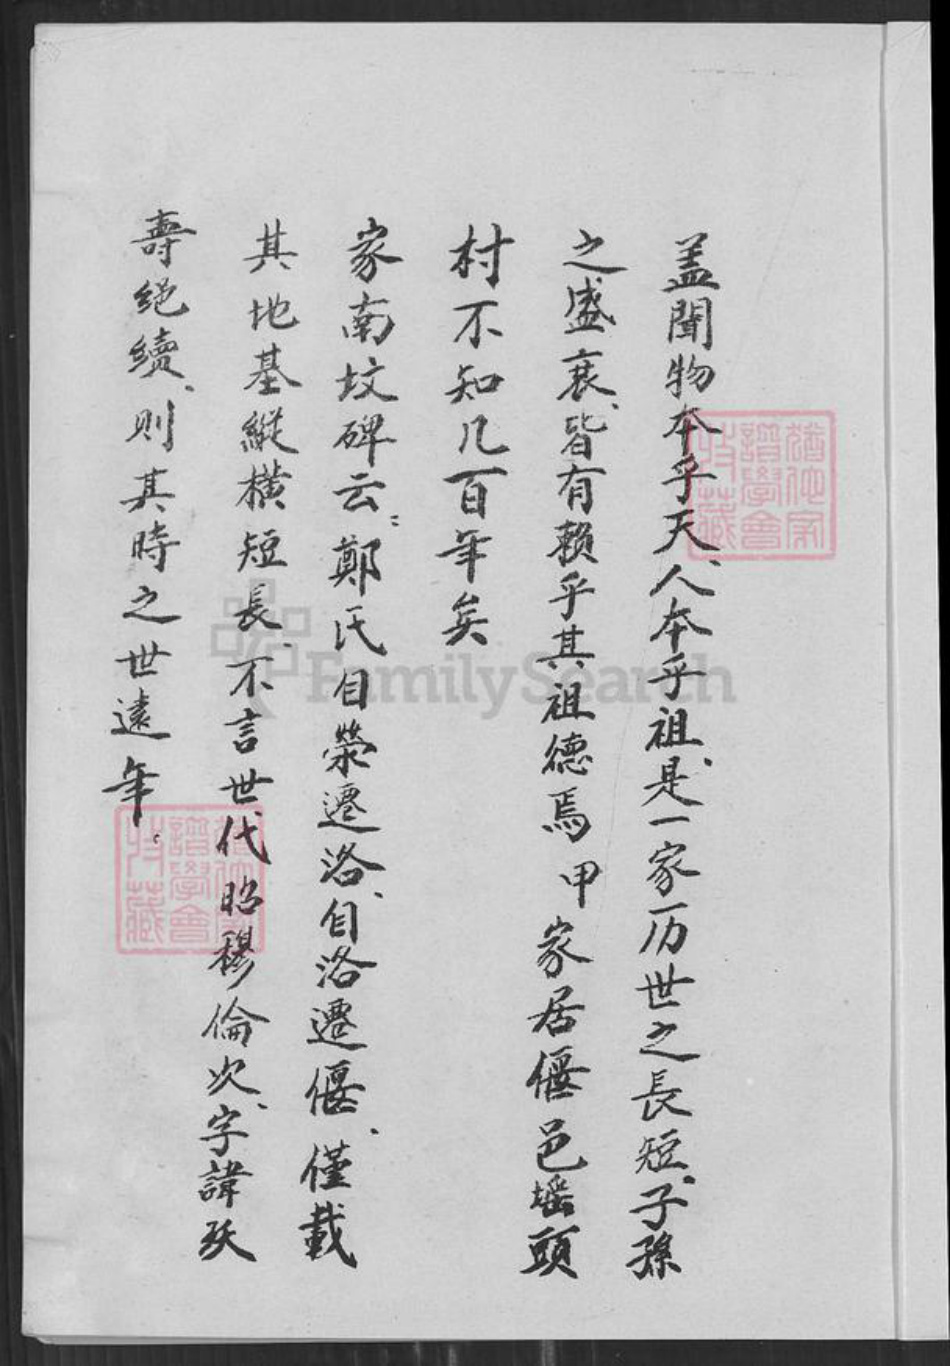 盖聞物本乎天、人本乎祖、是一家历世之長短、子孫
之盛衰、皆有赖乎其祖德焉甲家居偃邑瑶頭
村不知几百年矣
家南坟碑云：鄭氏自荥遷洛、自洛遷偃、僅載
其地基縱横短長、不言世代昭穆倫次、字諱妖
壽绝續、則其時之世遠年。
譜學會
收藏
FamilySearch
譜學會
收藏